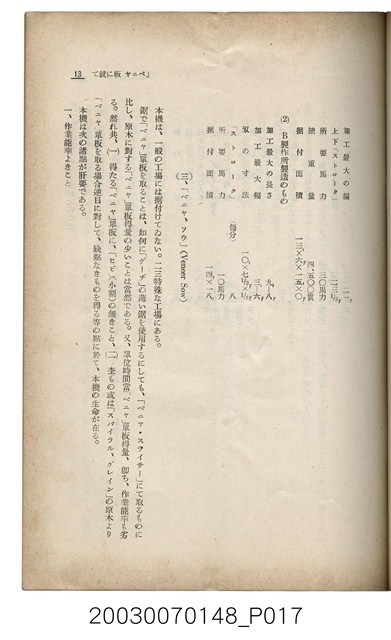 13 て就に板 ヤニベ」
加工最大の幅 二一
上下「ストローク」 二三½"
所要馬力 三〇馬力
總重量 四、五〇〇貫
据付面積 一三×六×一五×〇"
(2) B製作所製造のもの
加工最大の長さ 九—八
加工最大幅 三、六
双の寸法 一〇×七½×½"
「ストローク」(每分) 八
所要馬力 一〇馬力
据付面積 一四×一八
(三、「ベニヤ、ソウ」(Veneer Sow)
本機は、一般の工場には据付けてゐない。二三特殊な工場にある。
鋸で「ベニヤ」單板を取ることは、如何に「ゲーヂ」の薄い鋸を使用するにしても、「ベニヤ・スライサー」にて取るものに
比し、原木に對する「ベニヤ」單板得量の少いことは當然である。又、單位時間當「ベニヤ」單板得量、卽ち、作業能率も劣
る。然れ共、(一)得たる「ベニヤ」單板に、「ヒビ」(小割)の無きこと、(二)杢もの或は「スパイラル、グレイン」の原木より
「ベニヤ」單板を取る場合逆目に對して、缺點なきものを得る等の點に於て、本機の生命が在る。
本機は次の諸點が肝要である。
一、作業能率よきこと
20030070148_P017